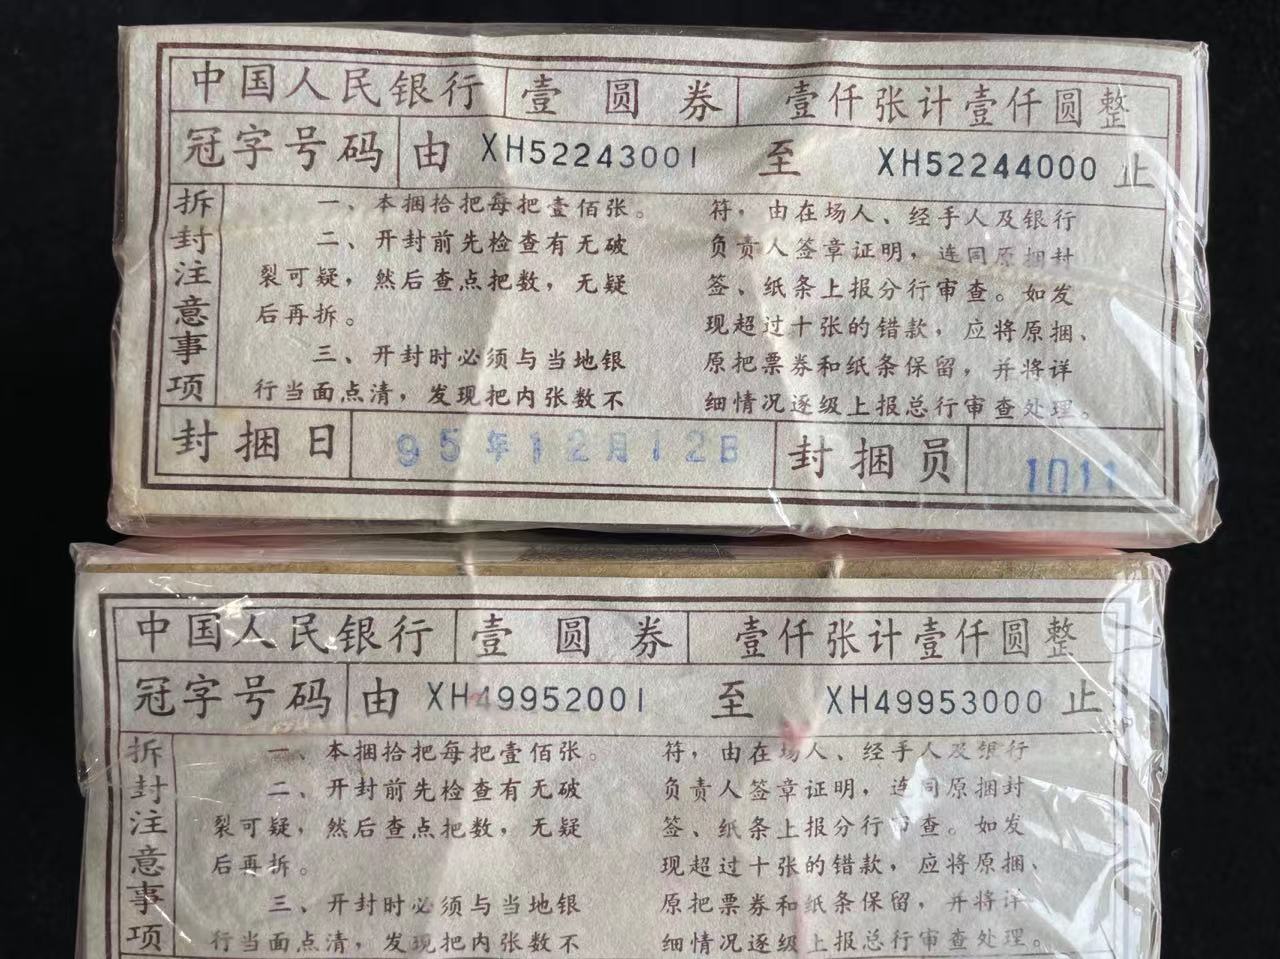 中国人民银行 壹圆券 壹仟张计壹仟圆整
冠字号码 由 XH52243001 至 XH52244000 止
拆封注意事项
一、本捆拾把每把壹佰张。
二、开封前先检查有无破
裂可疑，然后查点把数，无疑
后再拆。
三、开封时必须与当地银
行当面点清，发现把内张数不
符，由在场人、经手人及银行
负责人签章证明，连同原捆封
签、纸条上报分行审查。如发
现超过十张的错款，应将原捆、
原把票券和纸条保留，并将详
细情况逐级上报总行审查处理。
封捆日 95年12月12日 封捆员 1011
中国人民银行 壹圆券 壹仟张计壹仟圆整
冠字号码 由 XH49952001 至 XH49953000 止
拆封注意事项
一、本捆拾把每把壹佰张。
二、开封前先检查有无破
裂可疑，然后查点把数，无疑
后再拆。
三、开封时必须与当地银
行当面点清，发现把内张数不
符，由在场人、经手人及银行
负责人签章证明，连同原捆封
签、纸条上报分行审查。如发
现超过十张的错款，应将原捆、
原把票券和纸条保留，并将详
细情况逐级上报总行审查处理。